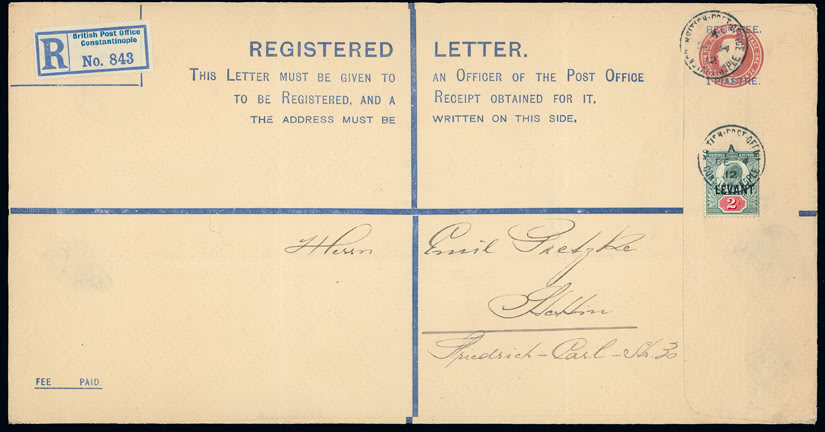 British Post Office
Constantinople
R No. 843
REGISTERED LETTER.
THIS LETTER MUST BE GIVEN TO AN OFFICER OF THE POST OFFICE
TO BE REGISTERED, AND A RECEIPT OBTAINED FOR IT.
THE ADDRESS MUST BE WRITTEN ON THIS SIDE.
BRITISH·POST·OFFICE
REG. FEE.
1 PIASTRE.
A
FE 4
12
LEVANT
2d
Herrn Emil Gretzke
Stettin
Friedrich-Carl-Str. 30
FEE PAID.